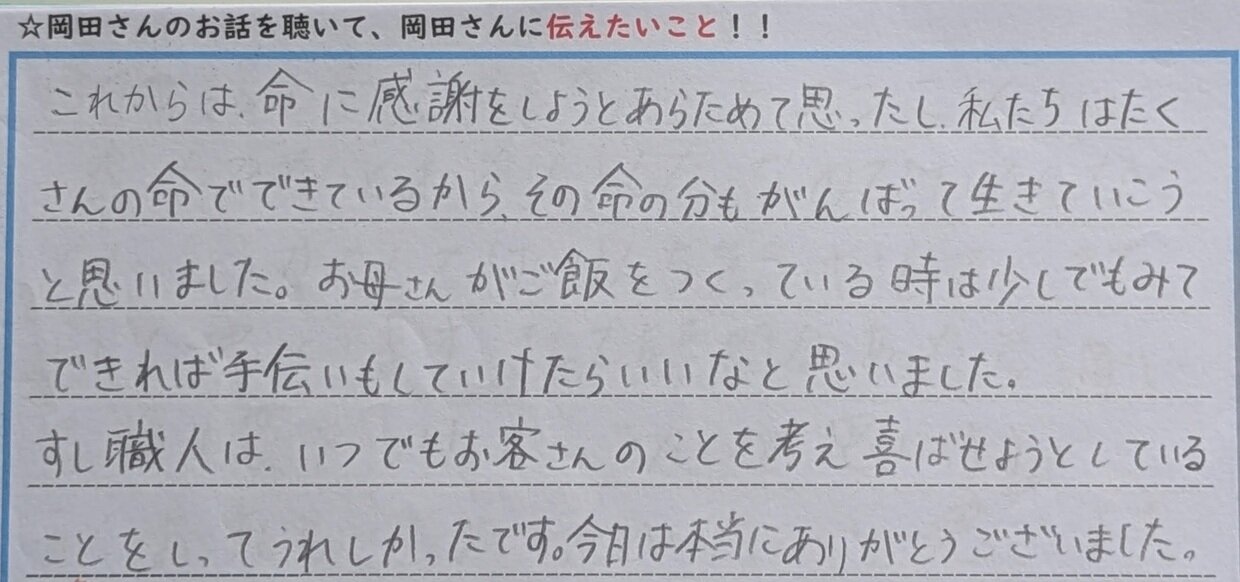 ☆岡田さんのお話を聴いて、岡田さんに伝えたいこと！！
これからは、命に感謝をしようとあらためて思ったし、私たちはたく
さんの命でできているから、その命の分もがんばって生きていこう
と思いました。お母さんがご飯をつくっている時は少しでもみて
できれば手伝いもしていけたらいいなと思いました。
すし職人は、いつでもお客さんのことを考え喜ばせようとしている
ことをしってうれしかったです。今日は本当にありがとうございました。